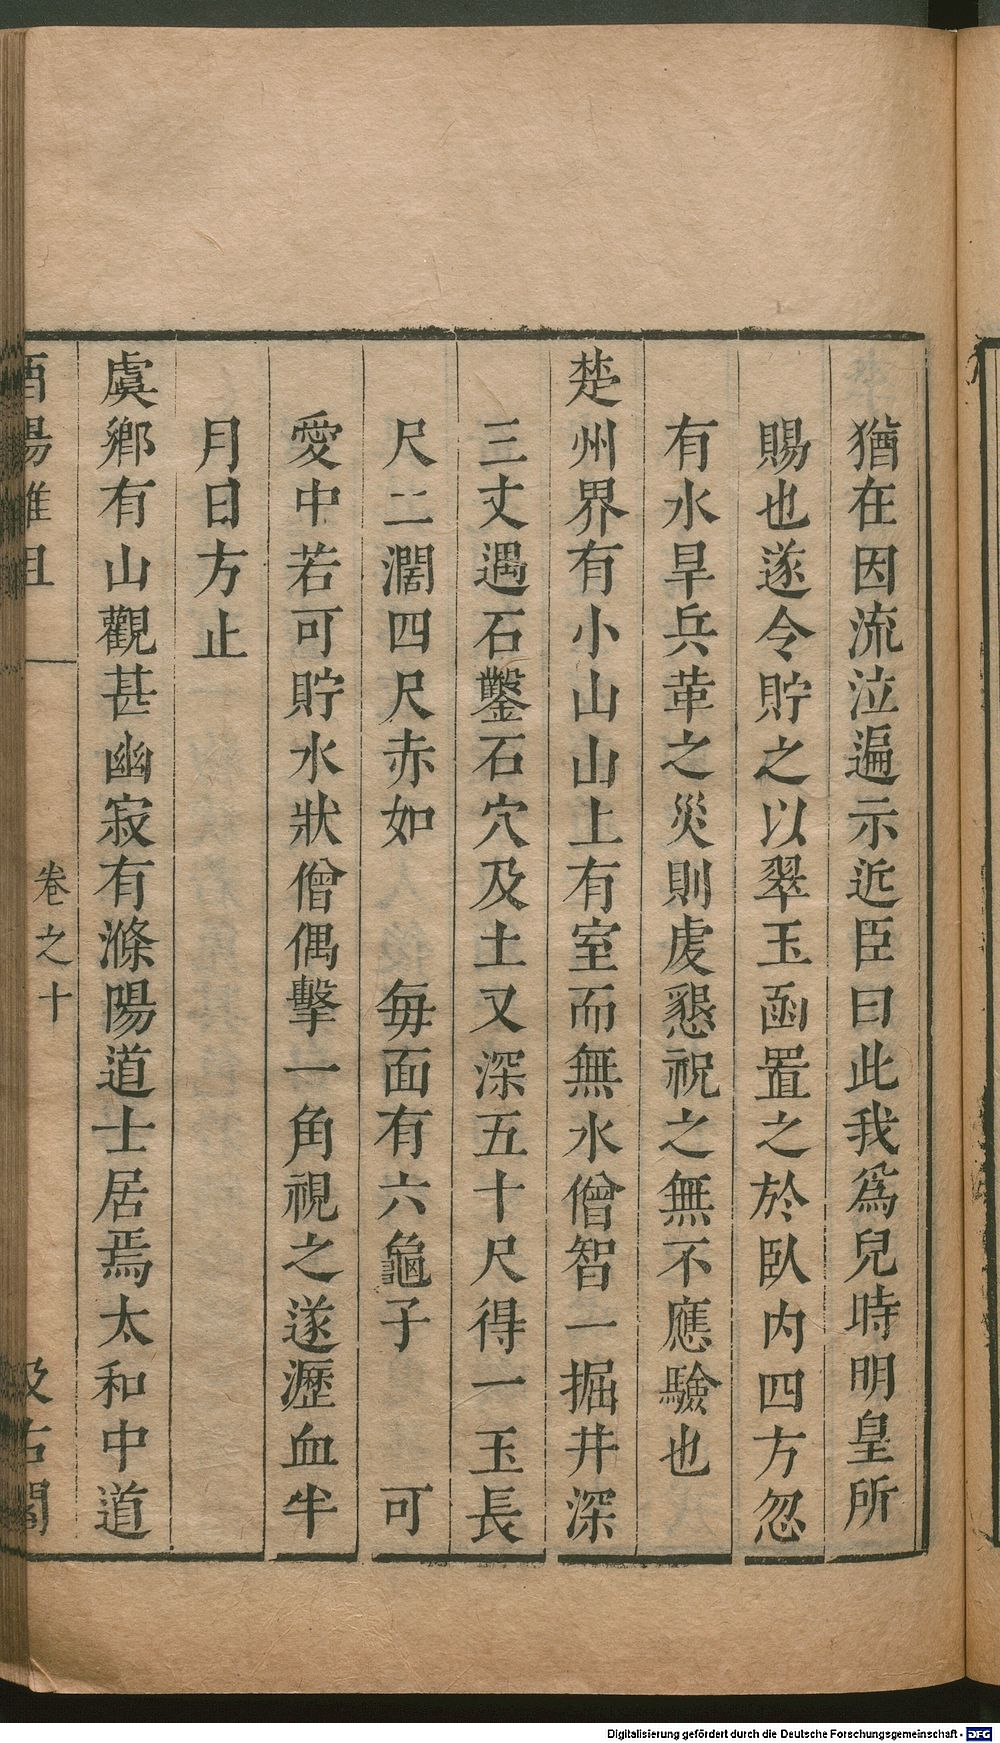 猶在因流泣遍示近臣曰此我爲兒時明皇所
賜也遂令貯之以翠玉函置之於臥内四方忽
有水旱兵革之災則虔懇祝之無不應驗也
楚州界有小山山上有室而無水僧智一掘井深
三丈遇石鑿石穴及土又深五十尺得一玉長
尺二濶四尺赤如　　每面有六龜子　　可
愛中若可貯水狀僧偶擊一角視之遂瀝血半
月日方止
虞鄉有山觀甚幽寂有滌陽道士居焉太和中道
酉陽雜俎
卷之十
汲古閣
Digitalisierung gefördert durch die Deutsche Forschungsgemeinschaft - DFG